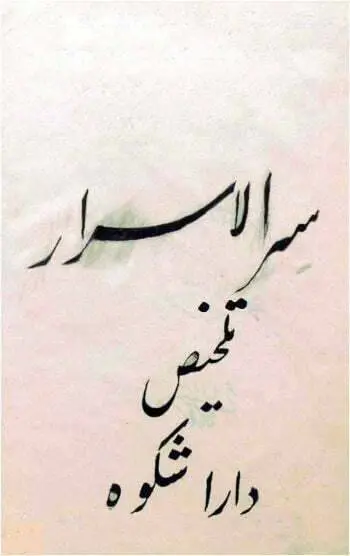 سرِ الاسرار
تلخیص
دارا شکوه